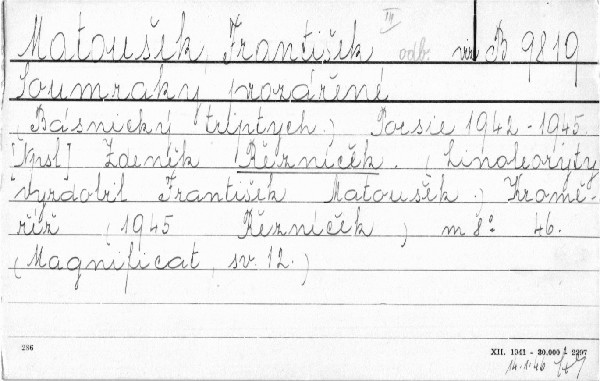 Matoušek, František odb. viz B 9819
Soumraky prozářené
(Básnický triptych.) Poesie 1942-1945.
[Npsl] Zdeněk Řezníček. (Linoleoryty
vyzdobil František Matoušek.) Kromě-
říž, (1945 Řezníček,) m 8° 46.
(Magnificat, sv. 12.)
286
XII. 1941 - 30.000 2207
14.1.46